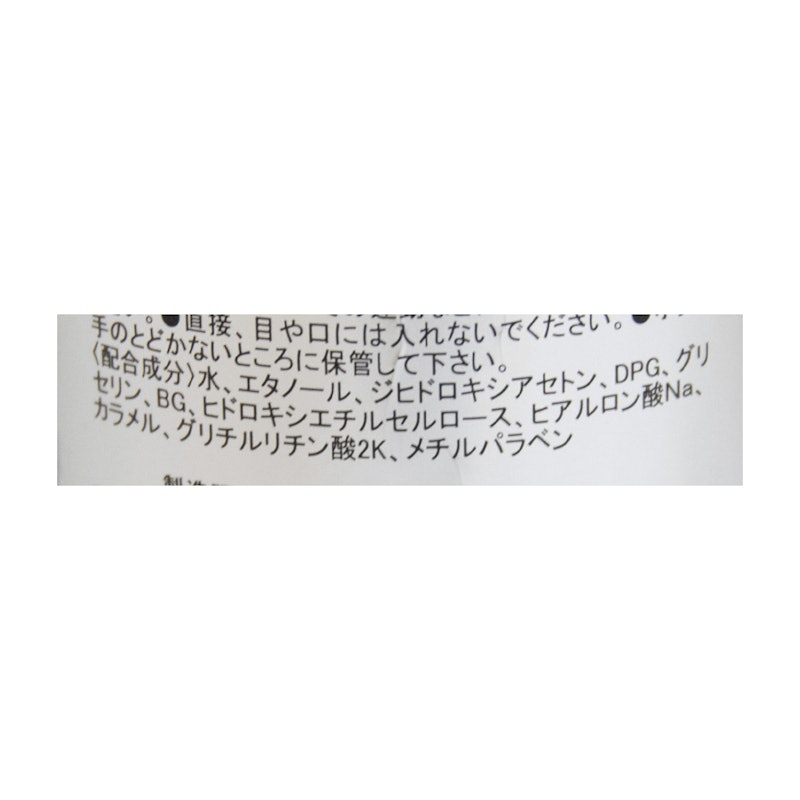 ●直接、目や口には入れないでください。●
手のとどかないところに保管して下さい。
〈配合成分〉水、エタノール、ジヒドロキシアセトン、DPG、グリ
セリン、BG、ヒドロキシエチルセルロース、ヒアルロン酸Na、
カラメル、グリチルリチン酸2K、メチルパラベン